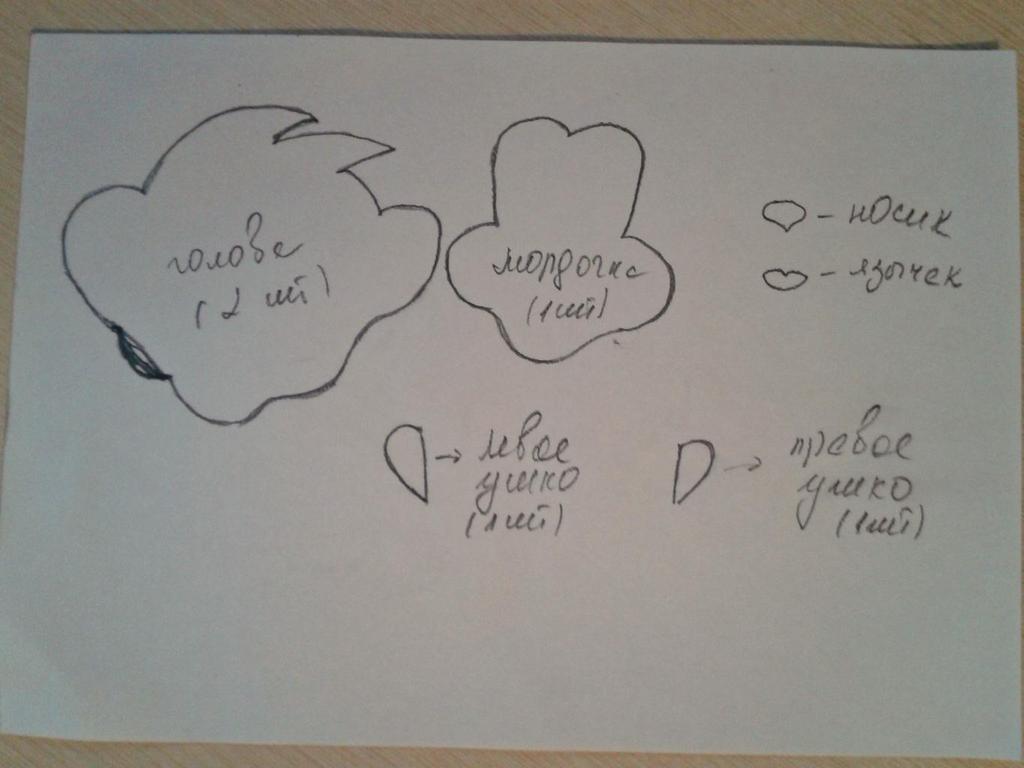 голова
(2 шт)
мордочка
(1шт)
- носик
- язычек
левое
ушко
(1шт)
правое
ушко
(1шт)